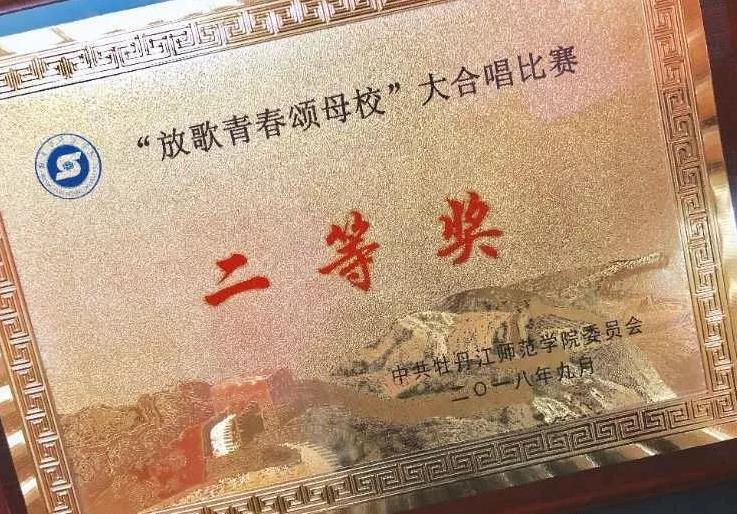 “放歌青春颂母校”大合唱比赛
二等奖
中共牡丹江师范学院委员会
二〇一八年九月